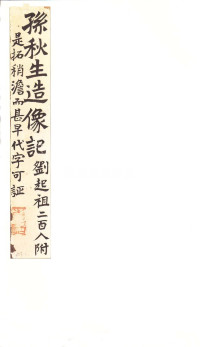 孫秋生造像記
劉起祖二百人附
是拓稍澹而甚早代字可証